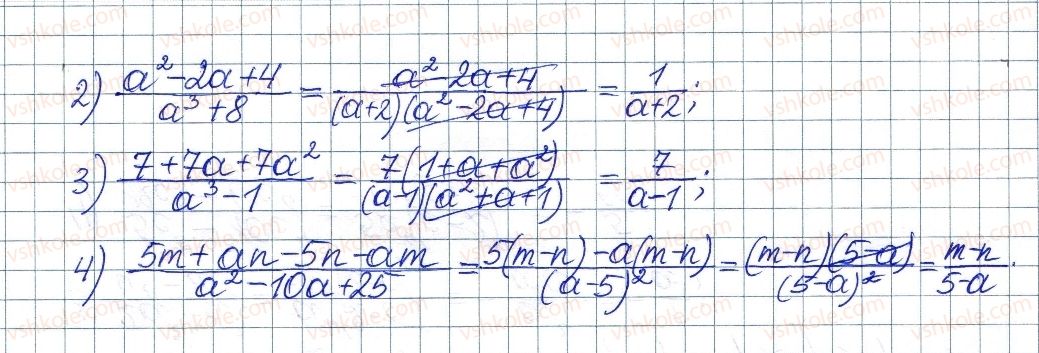 2) (a² - 2a + 4)/(a³ + 8) = (a² - 2a + 4)/((a+2)(a² - 2a + 4)) = 1/(a+2);
3) (7 + 7a + 7a²)/(a³ - 1) = 7(1 + a + a²)/((a-1)(a² + a + 1)) = 7/(a-1);
4) (5m + an - 5n - am)/(a² - 10a + 25) = (5(m-n) - a(m-n))/(a-5)² = (m-n)(5-a)/(5-a)² = (m-n)/(5-a).